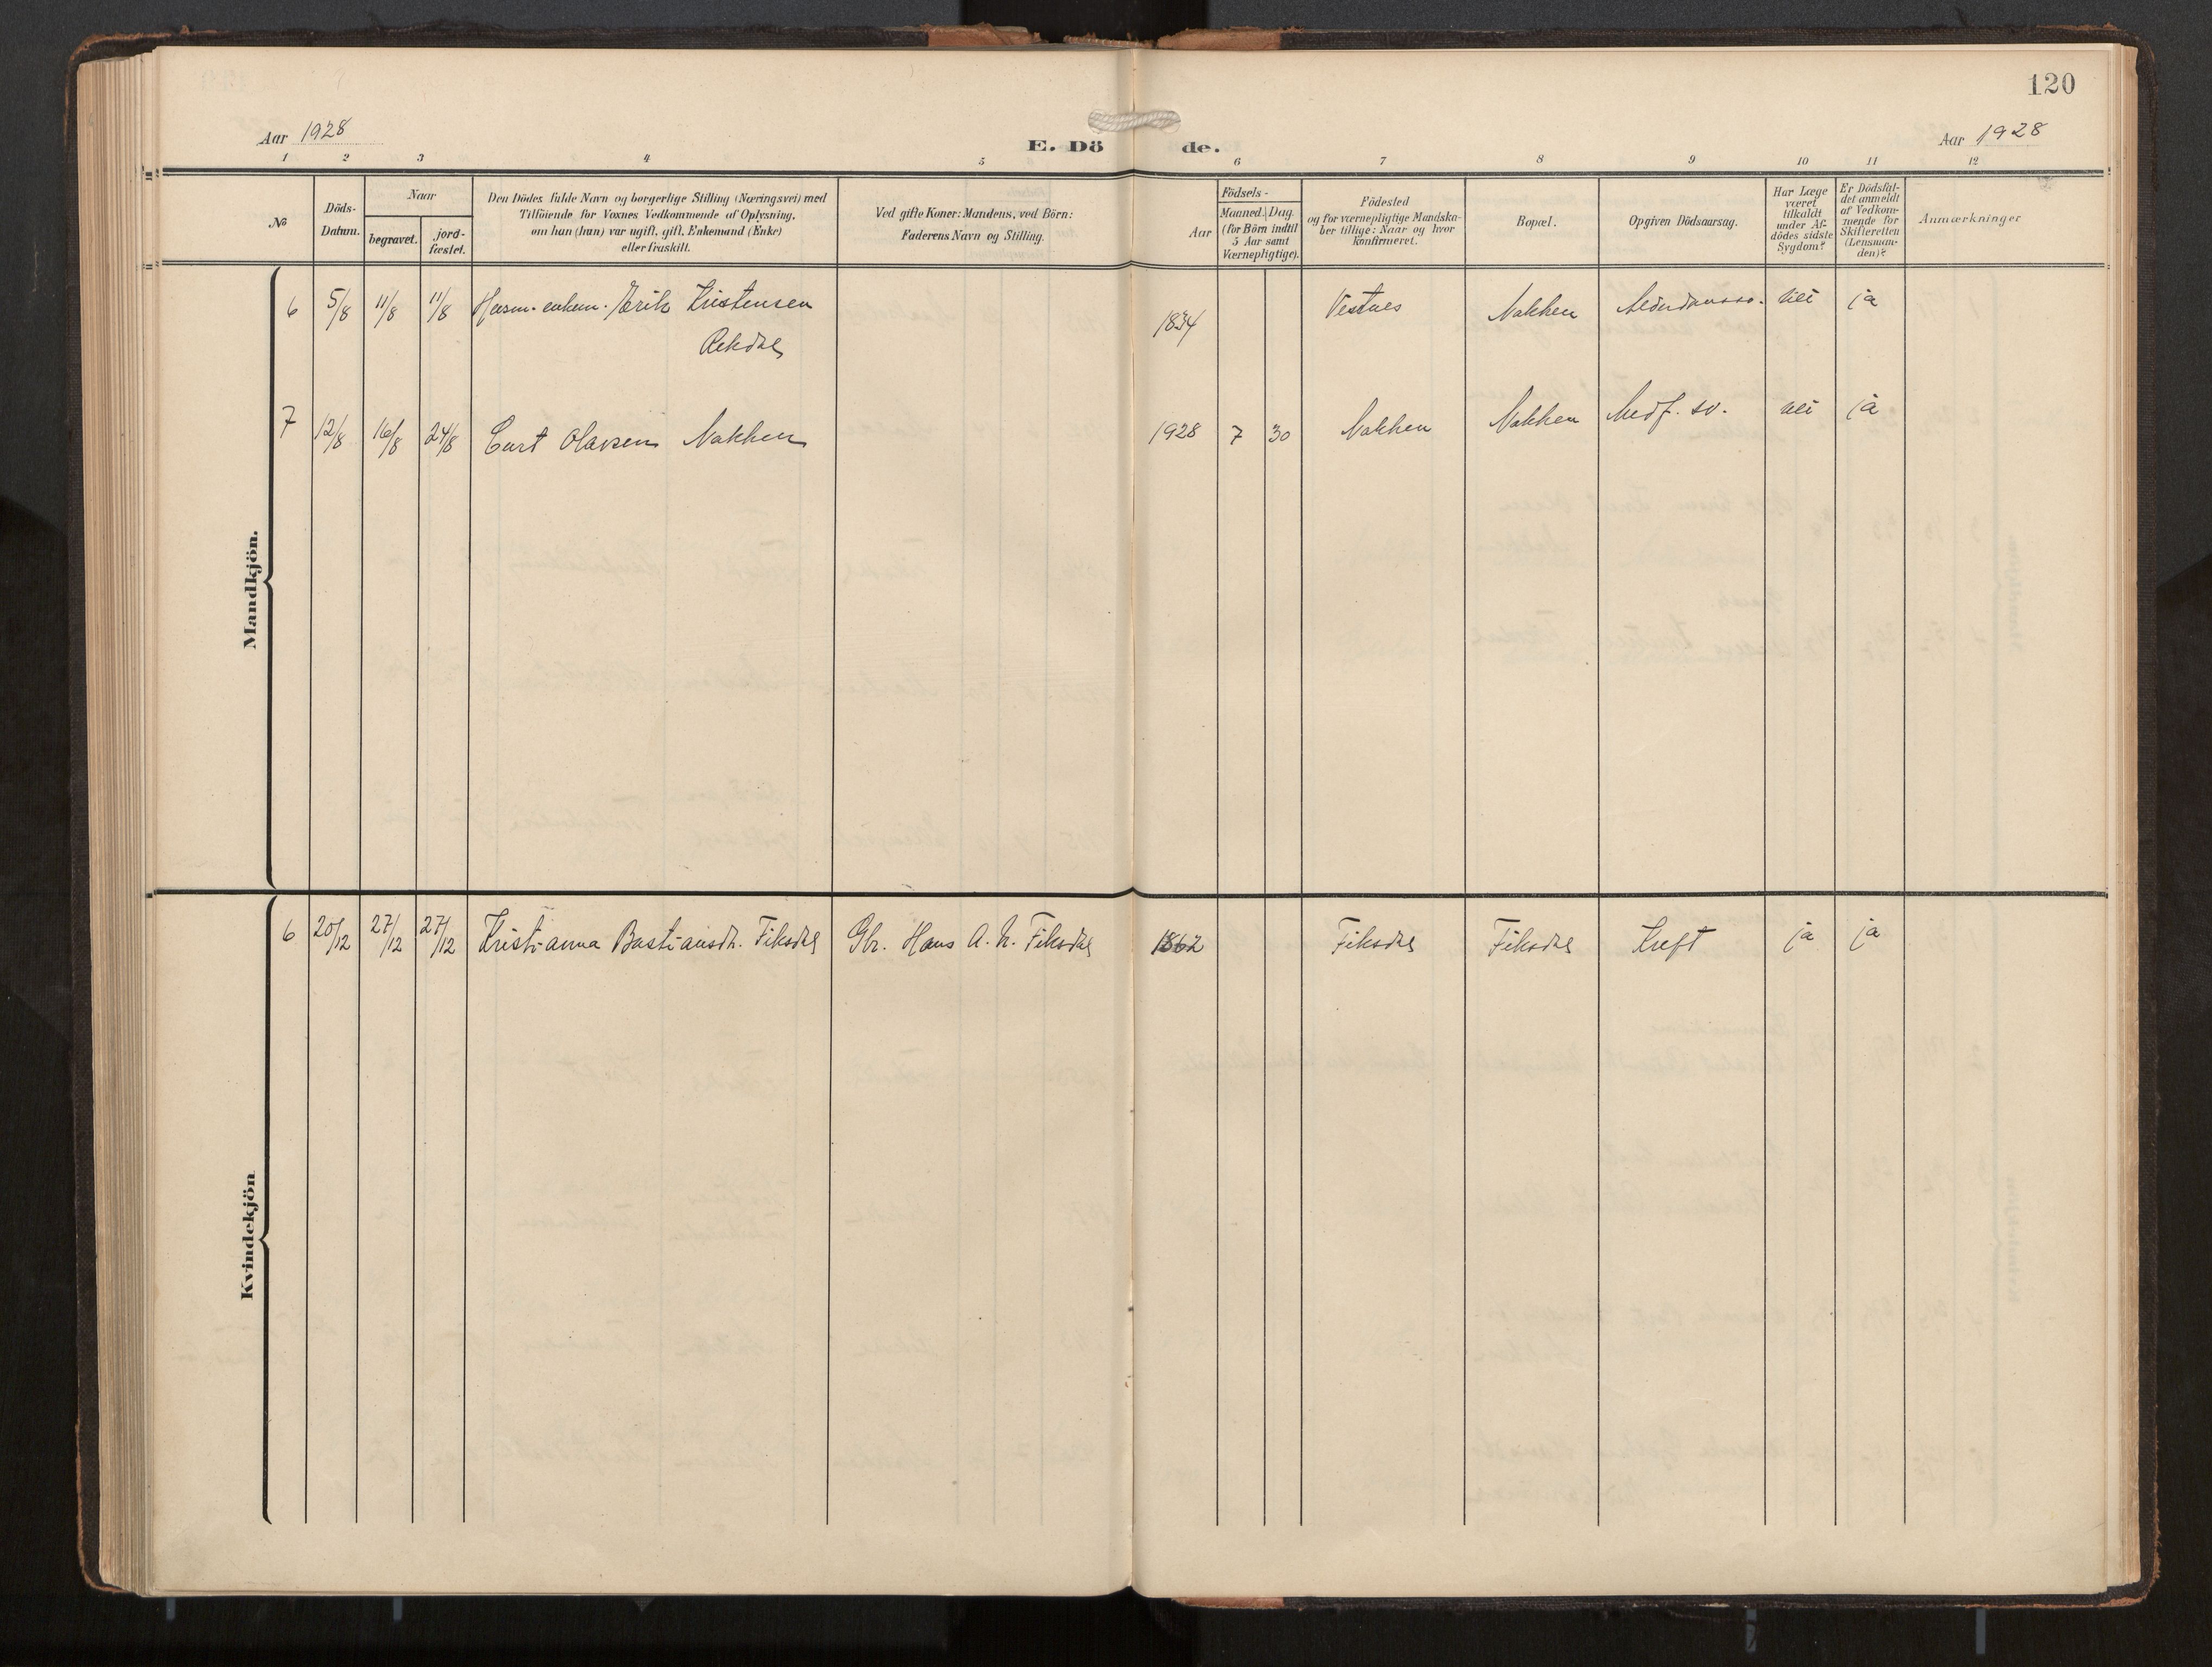 120
Aar 1928
Aar 1928
E. Dö de.
1 2 3 4 5 6 7 8 9 10 11 12
No
Döds-
Datum.
Naar
begravet.
jord-
fæstet.
Den Dödes fulde Navn og borgerlige Stilling (Næringsvei) med
Tilföiende for Voxnes Vedkommende af Oplysning,
om han (hun) var ugift, gift, Enkemand (Enke)
eller fraskilt.
Ved gifte Koner: Mandens, ved Börn:
Faderens Navn og Stilling.
Födsels-
Aar
Maaned. Dag
(for Börn indtil
5 Aar samt
Værnepligtige).
Födested
og for værnepligtige Mandska-
ber tillige: Naar og hvor
konfirmeret.
Bopæl.
Opgiven Dödsaarsag.
Har Læge
været
tilkaldt
under Af-
dödes sidste
Sygdom?
Er Dödsfal-
det anmeldt
af Vedkom-
mende for
Skifteretten
(Lensman-
den)?
Anmærkninger
Mandkjön.
6 5/8 11/8 11/8 Husm. enkem. Erik Kristensen 1834 Vestnes Nakken Alderdomssv. nei ja
Rekdal
7 12/8 16/8 24/8 Curt Olavsen Nakken 1928 7 30 Nakken Nakken Medf. sv. nei ja
Kvindekjön
6 20/12 27/12 27/12 Kristianna Bastiansdt. Fiksdal Gbr. Hans A. N. Fiksdal 1862 Fiksdal Fiksdal Kreft ja ja